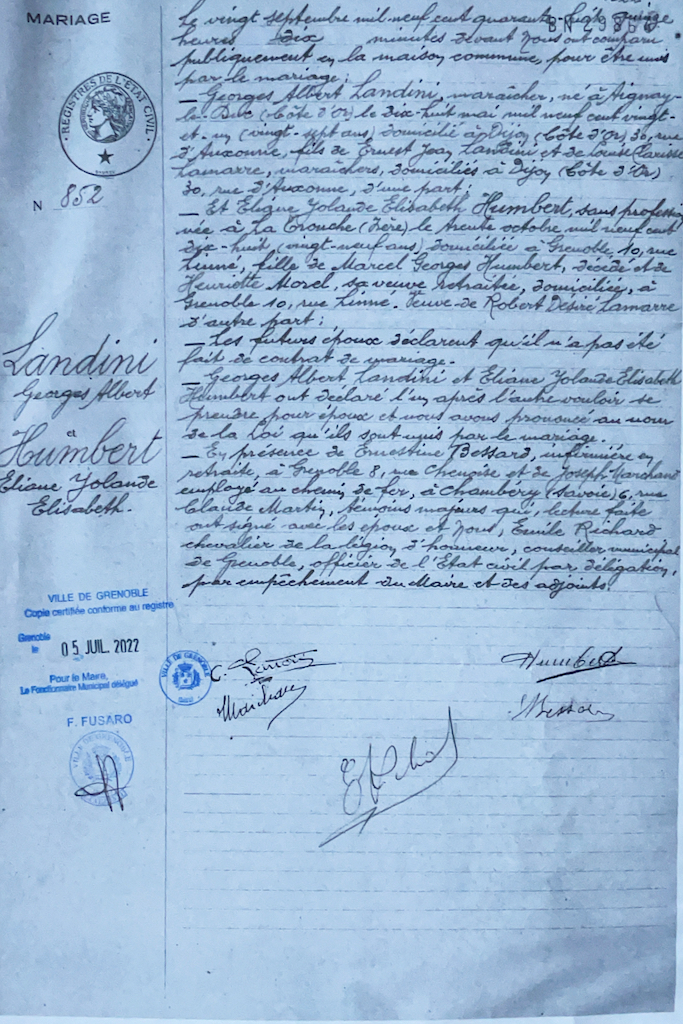 MARIAGE
REGISTRES DE L'ETAT CIVIL
N 852
Landini
Georges Albert
et
Humbert
Eliane Yolande
Elisabeth.
Le vingt septembre mil neuf cent quarante-huit quinze
heures dix minutes devant Nous ont comparu
publiquement en la maison commune, pour être unis
par le mariage:
— Georges Albert Landini, maraîcher, né à Aignay-
le-Duc (Côte d'Or) le dix-huit mai mil neuf cent vingt-
et-un (vingt-sept ans) domicilié à Dijon (Côte d'Or) 30, rue
d'Auxonne, fils de Ernest Jean Landini et de Louise Clarisse
Lamarre, maraîchers, domiciliés à Dijon (Côte d'Or)
30, rue d'Auxonne, d'une part;
— Et Eliane Yolande Elisabeth Humbert, sans profession
née à La Tronche (Isère) le trente octobre mil neuf cent
dix-huit (vingt-neuf ans) domiciliée à Grenoble, 10, rue
Linné, fille de Marcel Georges Humbert, décédé et de
Henriette Morel, sa veuve retraitée, domiciliée, à
Grenoble 10, rue Linné. Veuve de Robert Désiré Lamarre
d'autre part;
— Les futurs époux déclarent qu'il n'a pas été
fait de contrat de mariage.
— Georges Albert Landini et Eliane Yolande Elisabeth
Humbert ont déclaré l'un après l'autre vouloir se
prendre pour époux et nous avons prononcé au nom
de la Loi qu'ils sont unis par le mariage.
— En présence de Ernestine Bessard, infirmière en
retraite, à Grenoble 8, rue Chenoise et de Joseph Marchand
employé au chemin de fer, à Chambéry (Savoie) 6, rue
Claude Martin, témoins majeurs qui, lecture faite
ont signé avec les époux et Nous, Emile Richard
chevalier de la légion d'honneur, conseiller municipal
de Grenoble, officier de l'Etat civil par délégation,
par empêchement du Maire et des adjoints.
VILLE DE GRENOBLE
Copie certifiée conforme au registre
Grenoble
le 05 JUIL. 2022
Pour le Maire,
Le Fonctionnaire Municipal délégué
F. FUSARO
VILLE DE GRENOBLE
Humbert